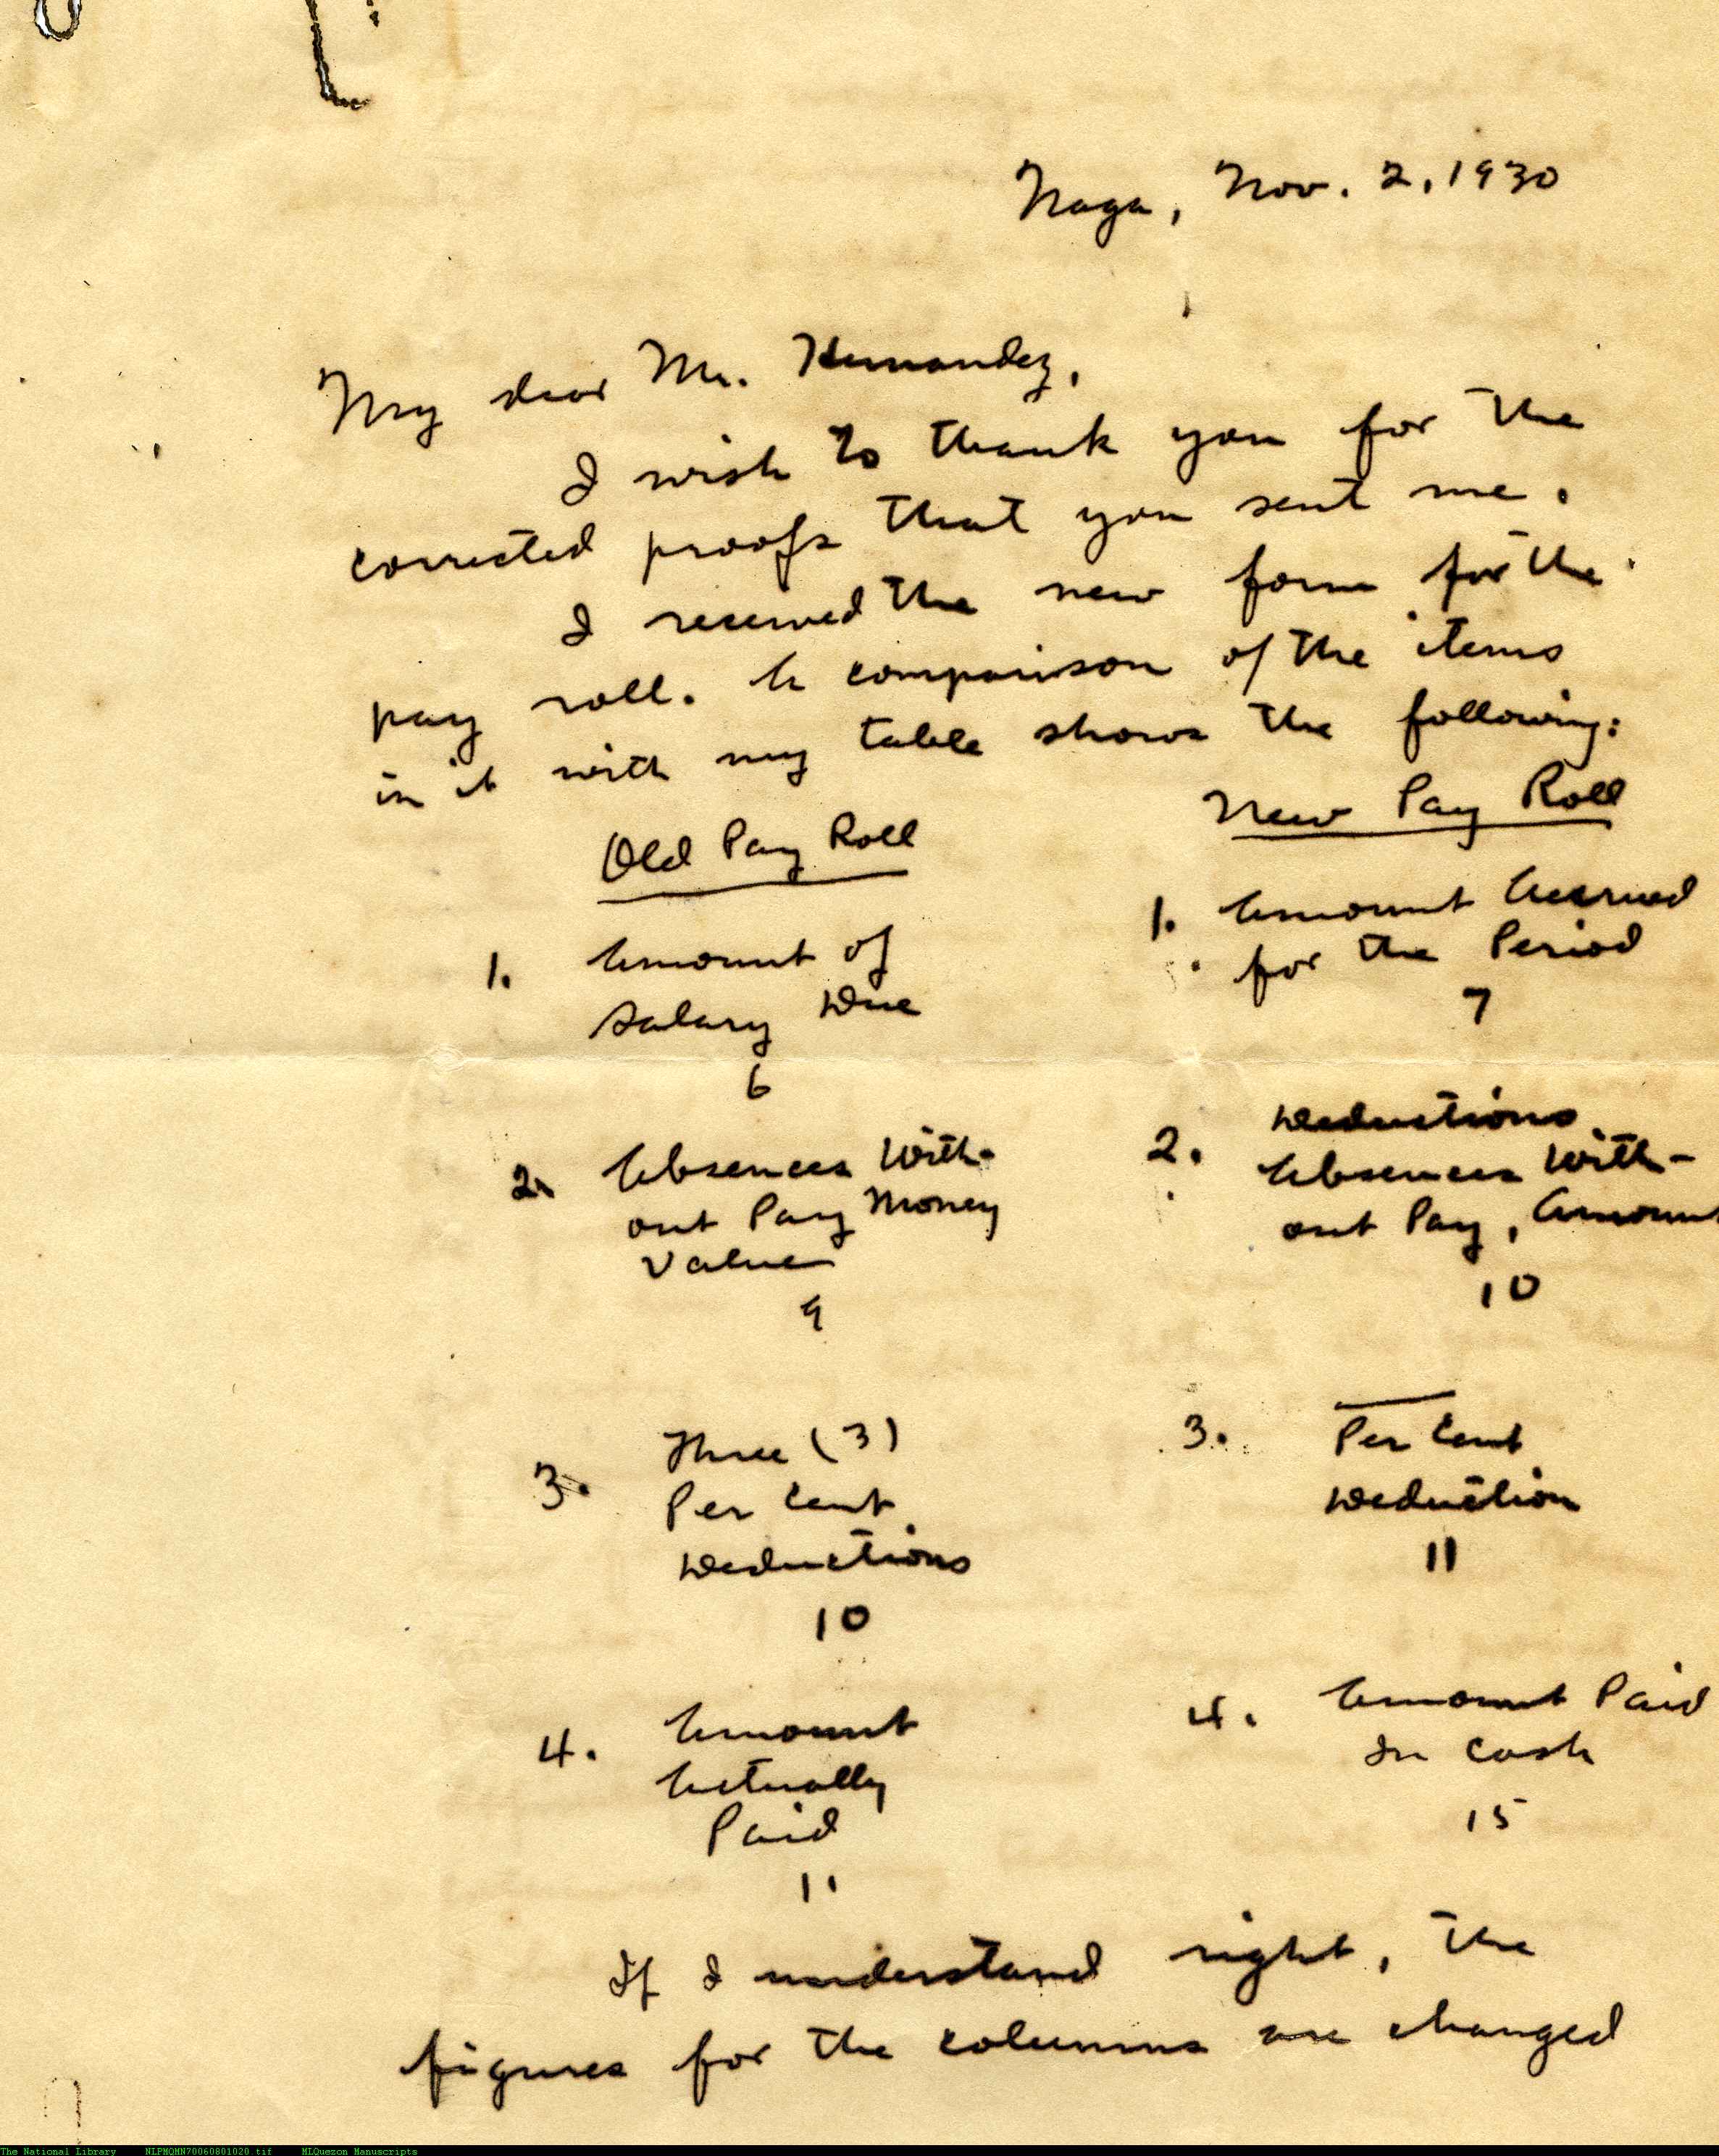 Naga, Nov. 2, 1930
My dear Mr. Hernandez,
I wish to thank you for the
corrected proofs that you sent me.
I received the new form for the
pay roll. A comparison of the items
in it with my table shows the following:
Old Pay Roll
New Pay Roll
1. Amount of
Salary Due
6
1. Amount Accrued
for the Period
7
2. Absences With-
out Pay Money
Value
9
2. Deductions
Absences With-
out Pay, Amount
10
3. Three (3)
Per Cent
Deductions
10
3. Per Cent
Deduction
11
4. Amount
Actually
Paid
11
4. Amount Paid
In Cash
15
If I understand right, the
figures for the columns are changed
The National Library NLPMQMN70060801020.tif MLQuezon Manuscripts